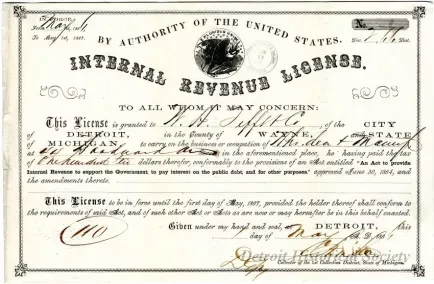 IN FORCE
From May 1,
To May 1st, 1867.
No.
Div. Dist.
BY AUTHORITY OF THE UNITED STATES.
INTERNAL REVENUE LICENSE.
TO ALL WHOM IT MAY CONCERN:
This License is granted to W. H. Tefft & Co. of the CITY
of DETROIT, in the County of WAYNE, and STATE
of MICHIGAN, to carry on the business or occupation of
at Woodward in the aforementioned place, he having paid the tax
of One hundred ten dollars therefor, conformably to the provisions of an Act entitled "An Act to provide
Internal Revenue to support the Government, to pay interest on the public debt, and for other purposes." approved June 30, 1864, and
the amendments thereto.
This License to be in force until the first day of May, 1867, provided the holder thereof shall conform to
the requirements of said Act, and of such other Act or Acts as are now or may hereafter be in this behalf enacted.
110 Given under my hand and seal, at DETROIT, this
day of May A. D. 186
Dep Collector of the 1st Collection District, State of Michigan.
Detroit Historical Society